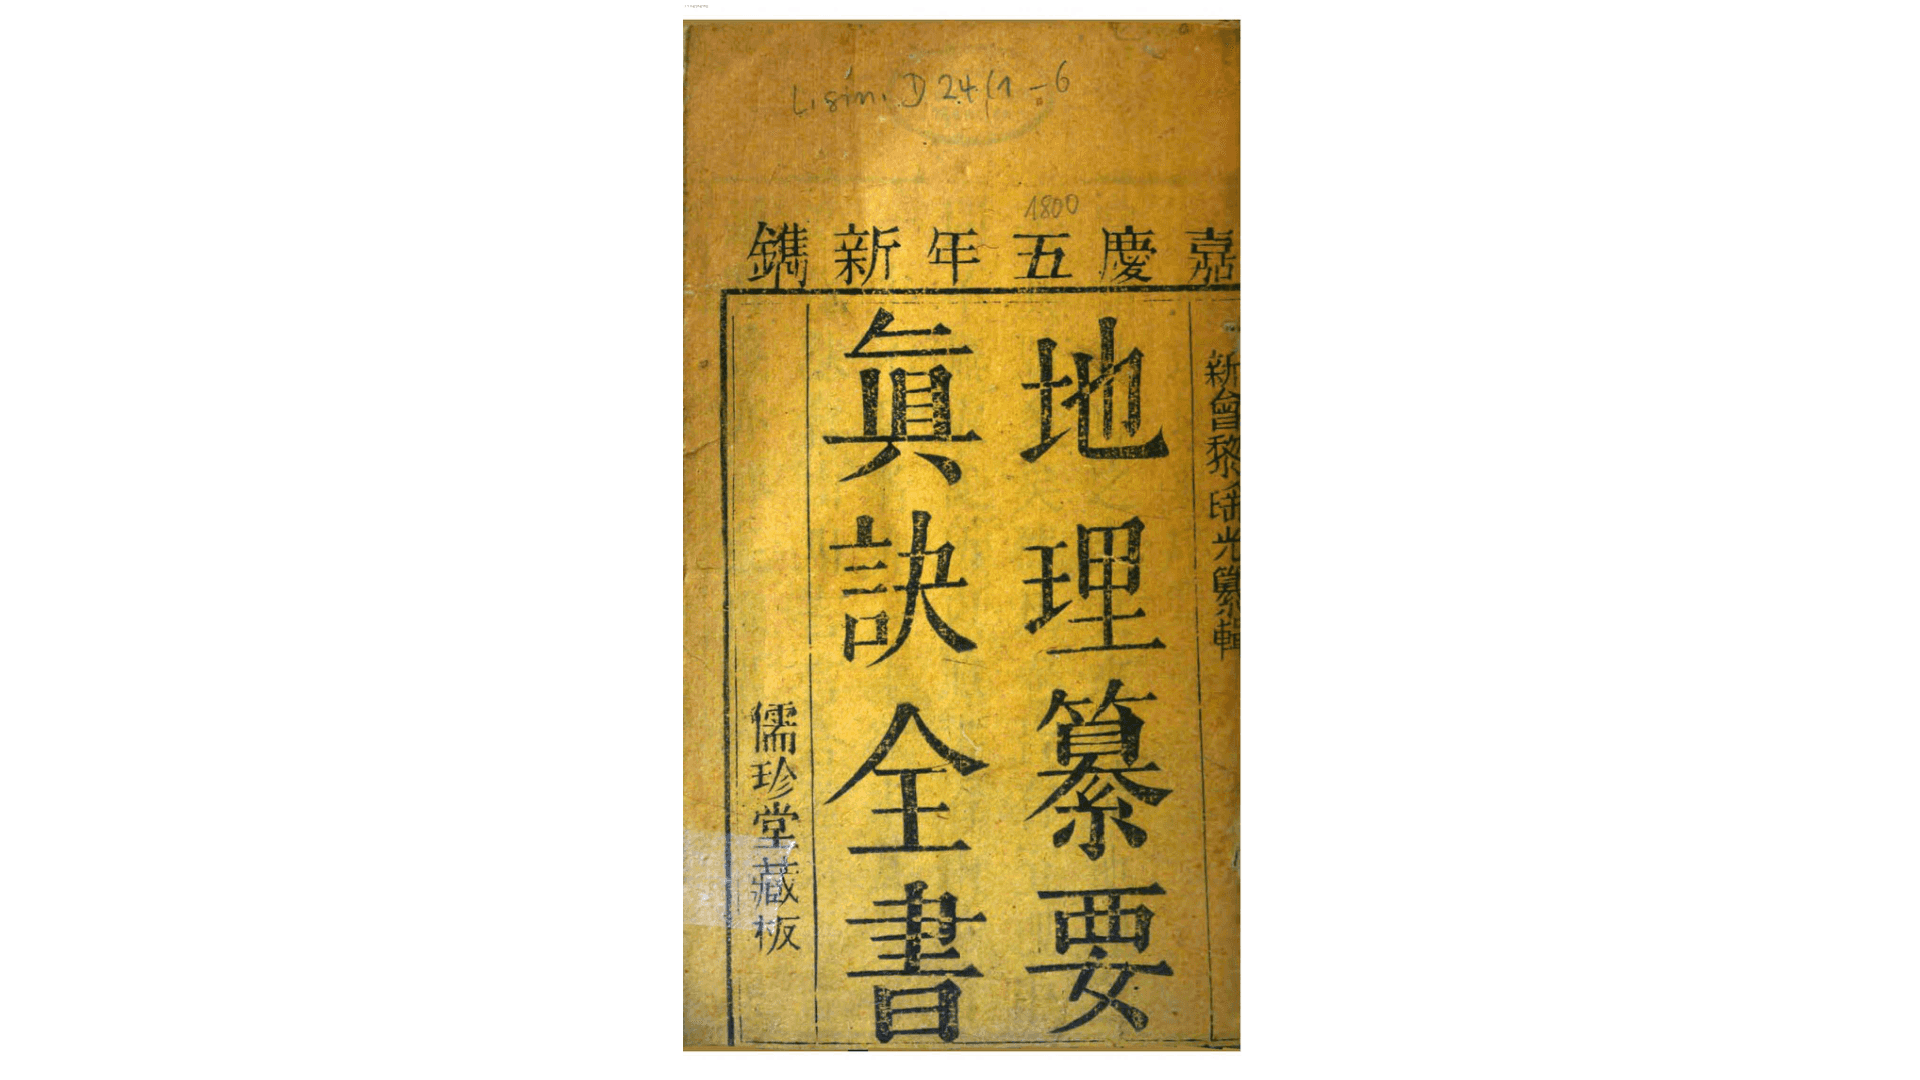 L. sin. D 24 (1-6
1800
嘉慶五年新鐫
新會黎
光纂輯
地理纂要
眞訣全書
儒珍堂藏板